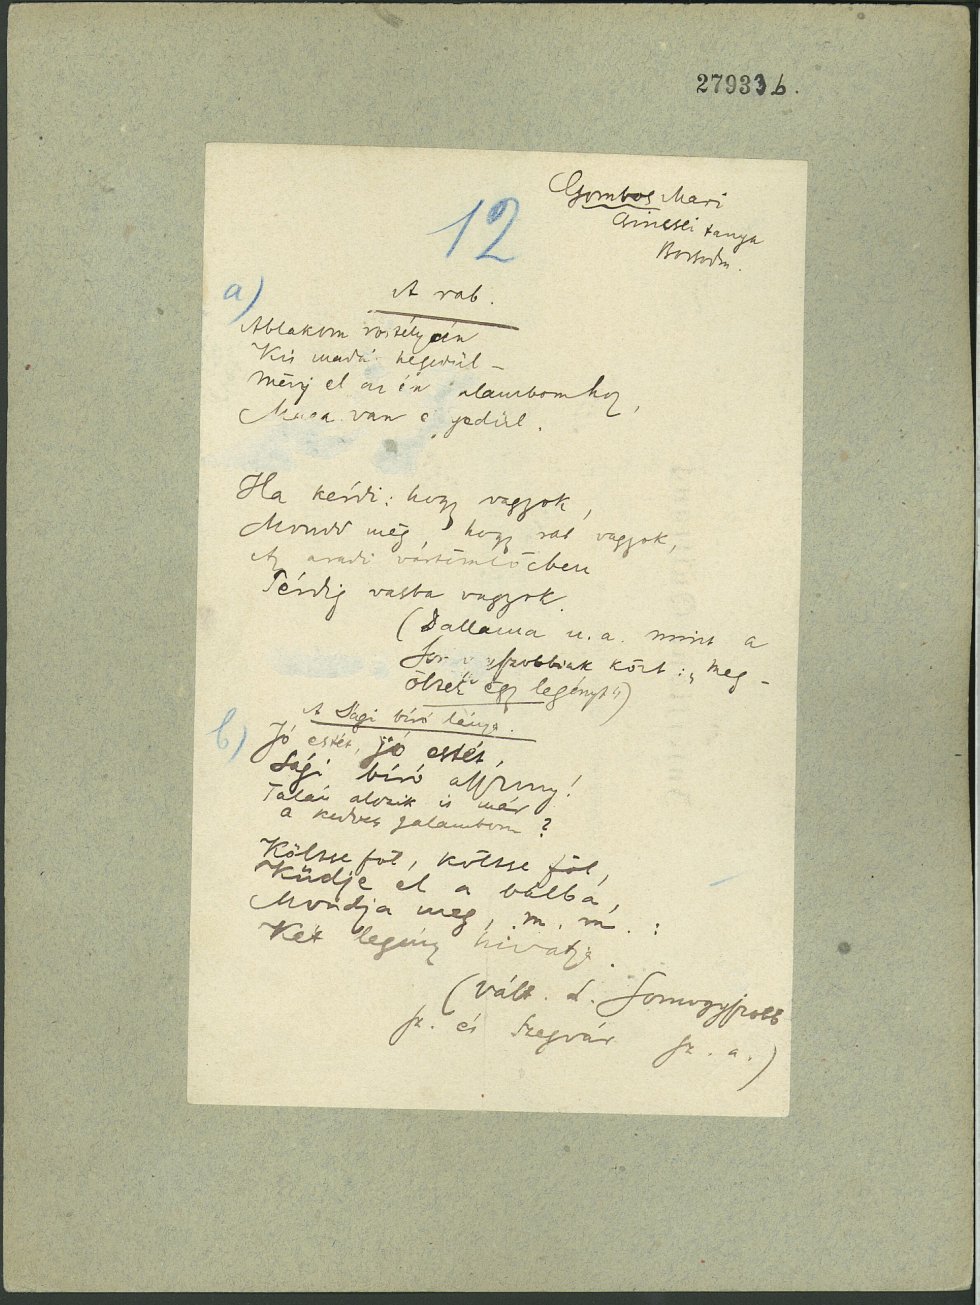 27933 b.
Gombos Mari
Csincsei tanya
Borsodm.
12
a)
A rab.
Ablakom rostélyán
Kis madár hegedül –
Menj el az én galambomhoz,
Maga van egyedül.
Ha kérdi: hogy vagyok,
Mondd meg, hogy rab vagyok,
Az aradi vártömlöcben
Térdig vasba vagyok.
(Dallama u. a. mint a
közt: „Meg-
öltek egy legényt")
b)
A Sági bíró lánya.
Jó estét, jó estét,
Sági bíró asszony!
Talán alszik is már
a kedves galambom?
Költse föl, költse föl,
Küdje el a bálba,
Mondja meg, m. m. :
Két legény hivatja.
(Vált. l. Somogyszobb
sz. és Szegvár sz. a.)